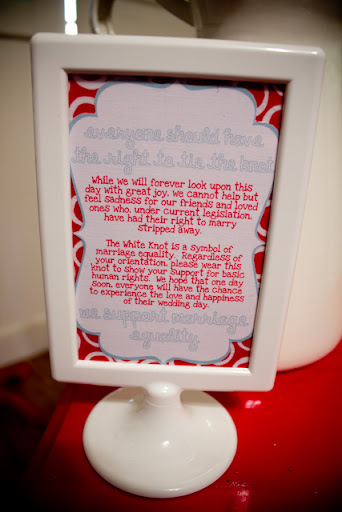 everyone should have
the right to tie the knot
While we will forever look upon this
day with great joy, we cannot help but
feel sadness for our friends and loved
ones who, under current legislation,
have had their right to marry
stripped away.
The White Knot is a symbol of
marriage equality. Regardless of
your orientation, please wear this
knot to show your Support for basic
human rights. We hope that one day
soon, everyone will have the chance
to experience the love and happiness
of their wedding day.
we support marriage
equality